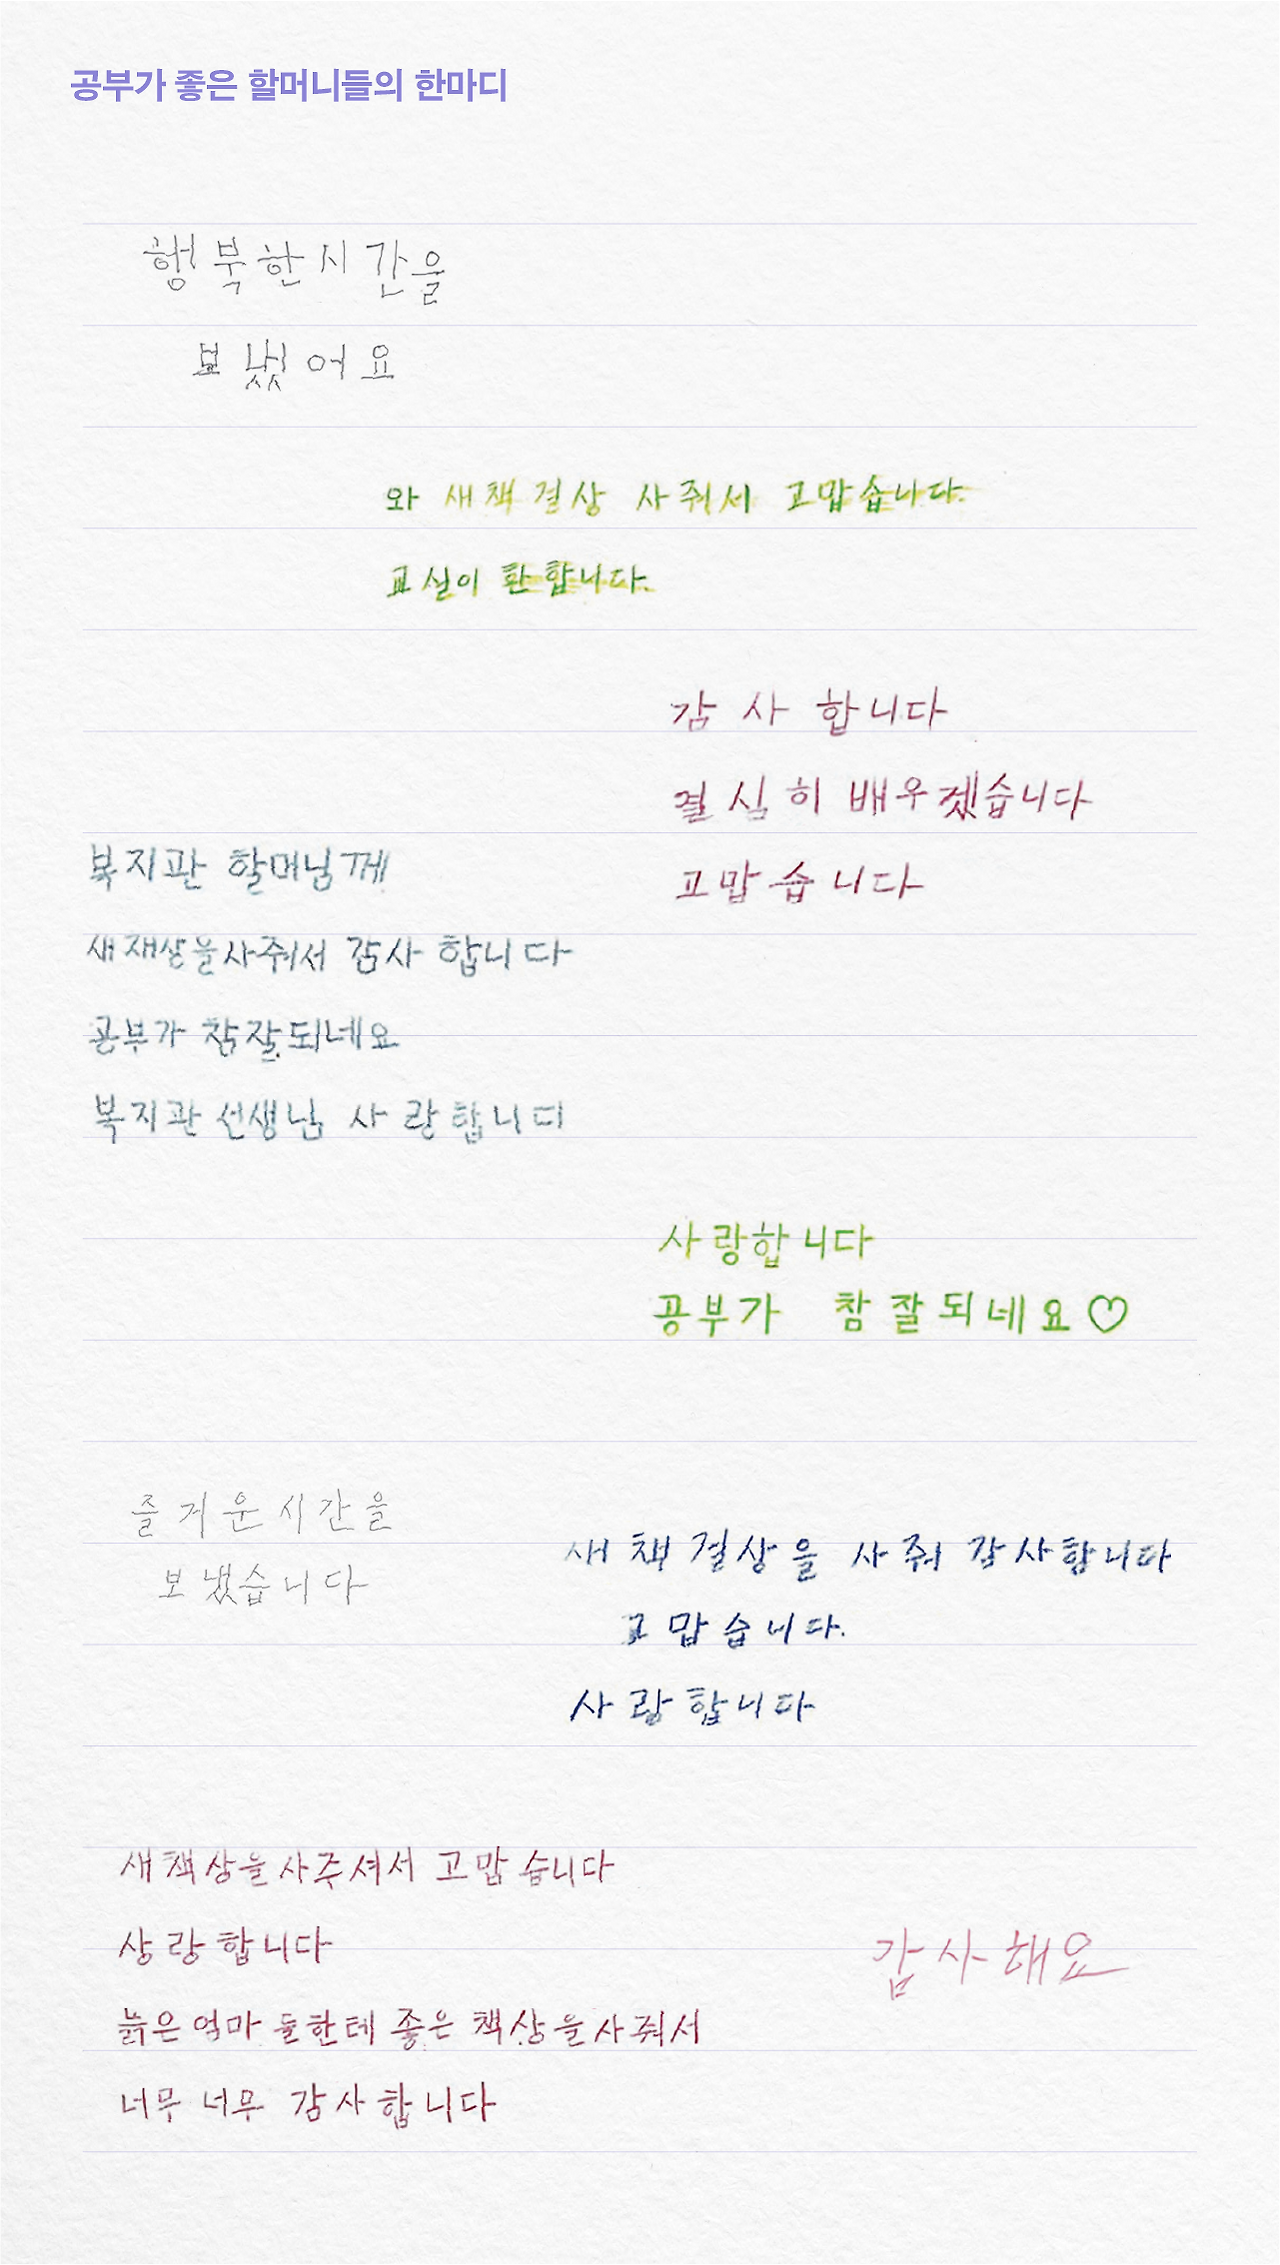 공부가 좋은 할머니들의 한마디
행복한시간을
보냈어요
와 새책걸상 사줘서 고맙습니다.
교실이 환합니다.
감사합니다
결심히 배우겠습니다
고맙습니다
복지관 할머님께
새재상을사줘서 감사합니다
공부가 참잘되네요
복지관선생님 사랑합니디
사랑합니다
공부가 참잘되네요♡
즐거운시간을
보냈습니다
새책걸상을 사줘 감사합니다
고맙습니다.
사랑합니다
새책상을사주셔서 고맙습니다
상랑합니다
늙은엄마들한테 좋은 책상을사줘서
너무너무 감사합니다
감사해요